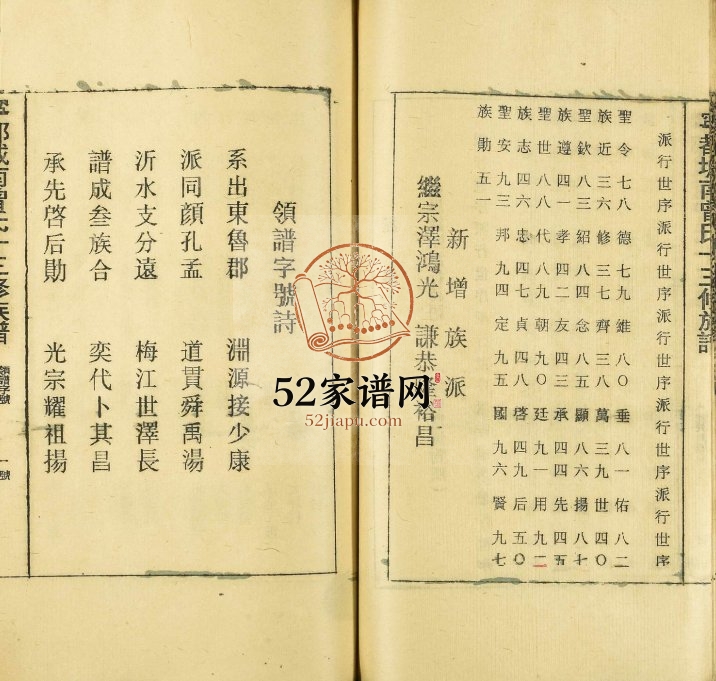 寧都城南曾氏十三修族譜
派行世序派行世序派行世序派行世序派行世序
聖令七八德七九維八〇垂八一佑八二
族近三六修三七齊三八萬三九世四〇
聖欽八三紹八四念八五顯八六揚八七
族遵四一孝四二友四三承四四先四五
聖世八八代八九朝九〇廷九一用九二
族志四六忠四七貞四八啓四九后五〇
聖安九三邦九四定九五國九六賢九七
族勛五一
新增族派
繼宗澤鴻光 謙恭隆裕昌
領譜字號詩
系出東魯郡 淵源接少康
派同顏孔孟 道貫舜禹湯
沂水支分遠 梅江世澤長
譜成叁族合 奕代卜其昌
承先啓后勛 光宗耀祖揚
都城南曾氏十三修族譜 領譜字號 一號
52家谱网
52jiapu.com